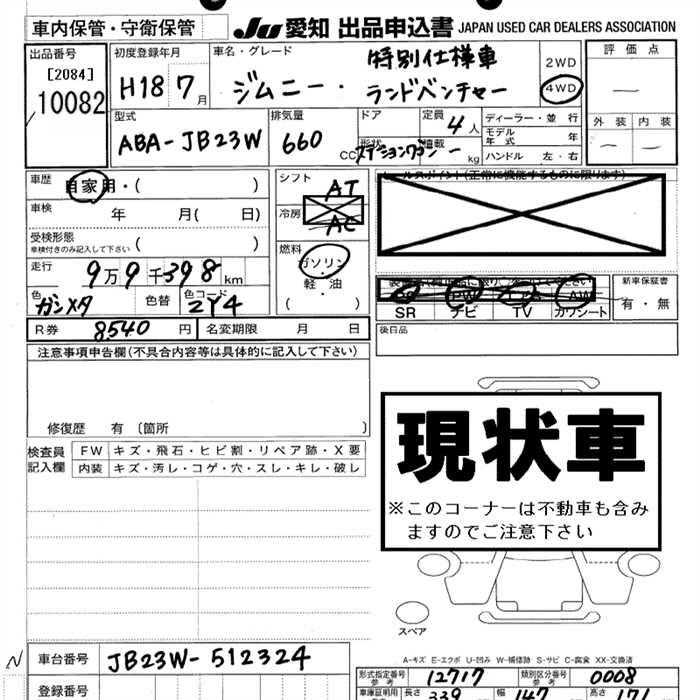 車内保管・守衛保管
JU 愛知 出品申込書 JAPAN USED CAR DEALERS ASSOCIATION
出品番号
[2084]
10082
初度登録年月
H18 7月
車名・グレード
ジムニー・
特別仕様車
ランドベンチャー
2WD
4WD
評価点
—
外装 内装
— —
型式
ABA-JB23W
排気量
660
CC
ドア
形状
ステーションワゴン
定員
4人
積載
— kg
ディーラー・並行
モデル年式 年
ハンドル 左・右
車歴
自家用・( )
車検 年 月( 日)
受検形態
車検付きのみ記入して下さい ( )
走行
9万9千398km
色
ガンメタ
色替
色コード
ZY4
R券 8540円
名変期限 月 日
シフト
AT
冷房
AC
燃料
ガソリン・
軽油
( )
セールスポイント(正常に機能するものに限ります)
PS PW エアB AW
SR ナビ TV カワシート
新車保証書
有・無
後日品
注意事項申告欄(不具合内容等は具体的に記入して下さい)
修復歴 有〔箇所 〕
検査員
記入欄
FW キズ・飛石・ヒビ割・リペア跡・X要
内装 キズ・汚レ・コゲ・穴・スレ・キレ・破レ
現状車
※このコーナーは不動車も含み
ますのでご注意下さい
スペア
A-キズ E-エクボ U-凹み W-補修跡 S-サビ C-腐食 XX-交換済
N
車台番号 JB23W-512324
登録番号
型式指定番号
参考
12717
類別区分番号
参考
0008
車庫証明用
長さ
339
幅
147
高さ
171